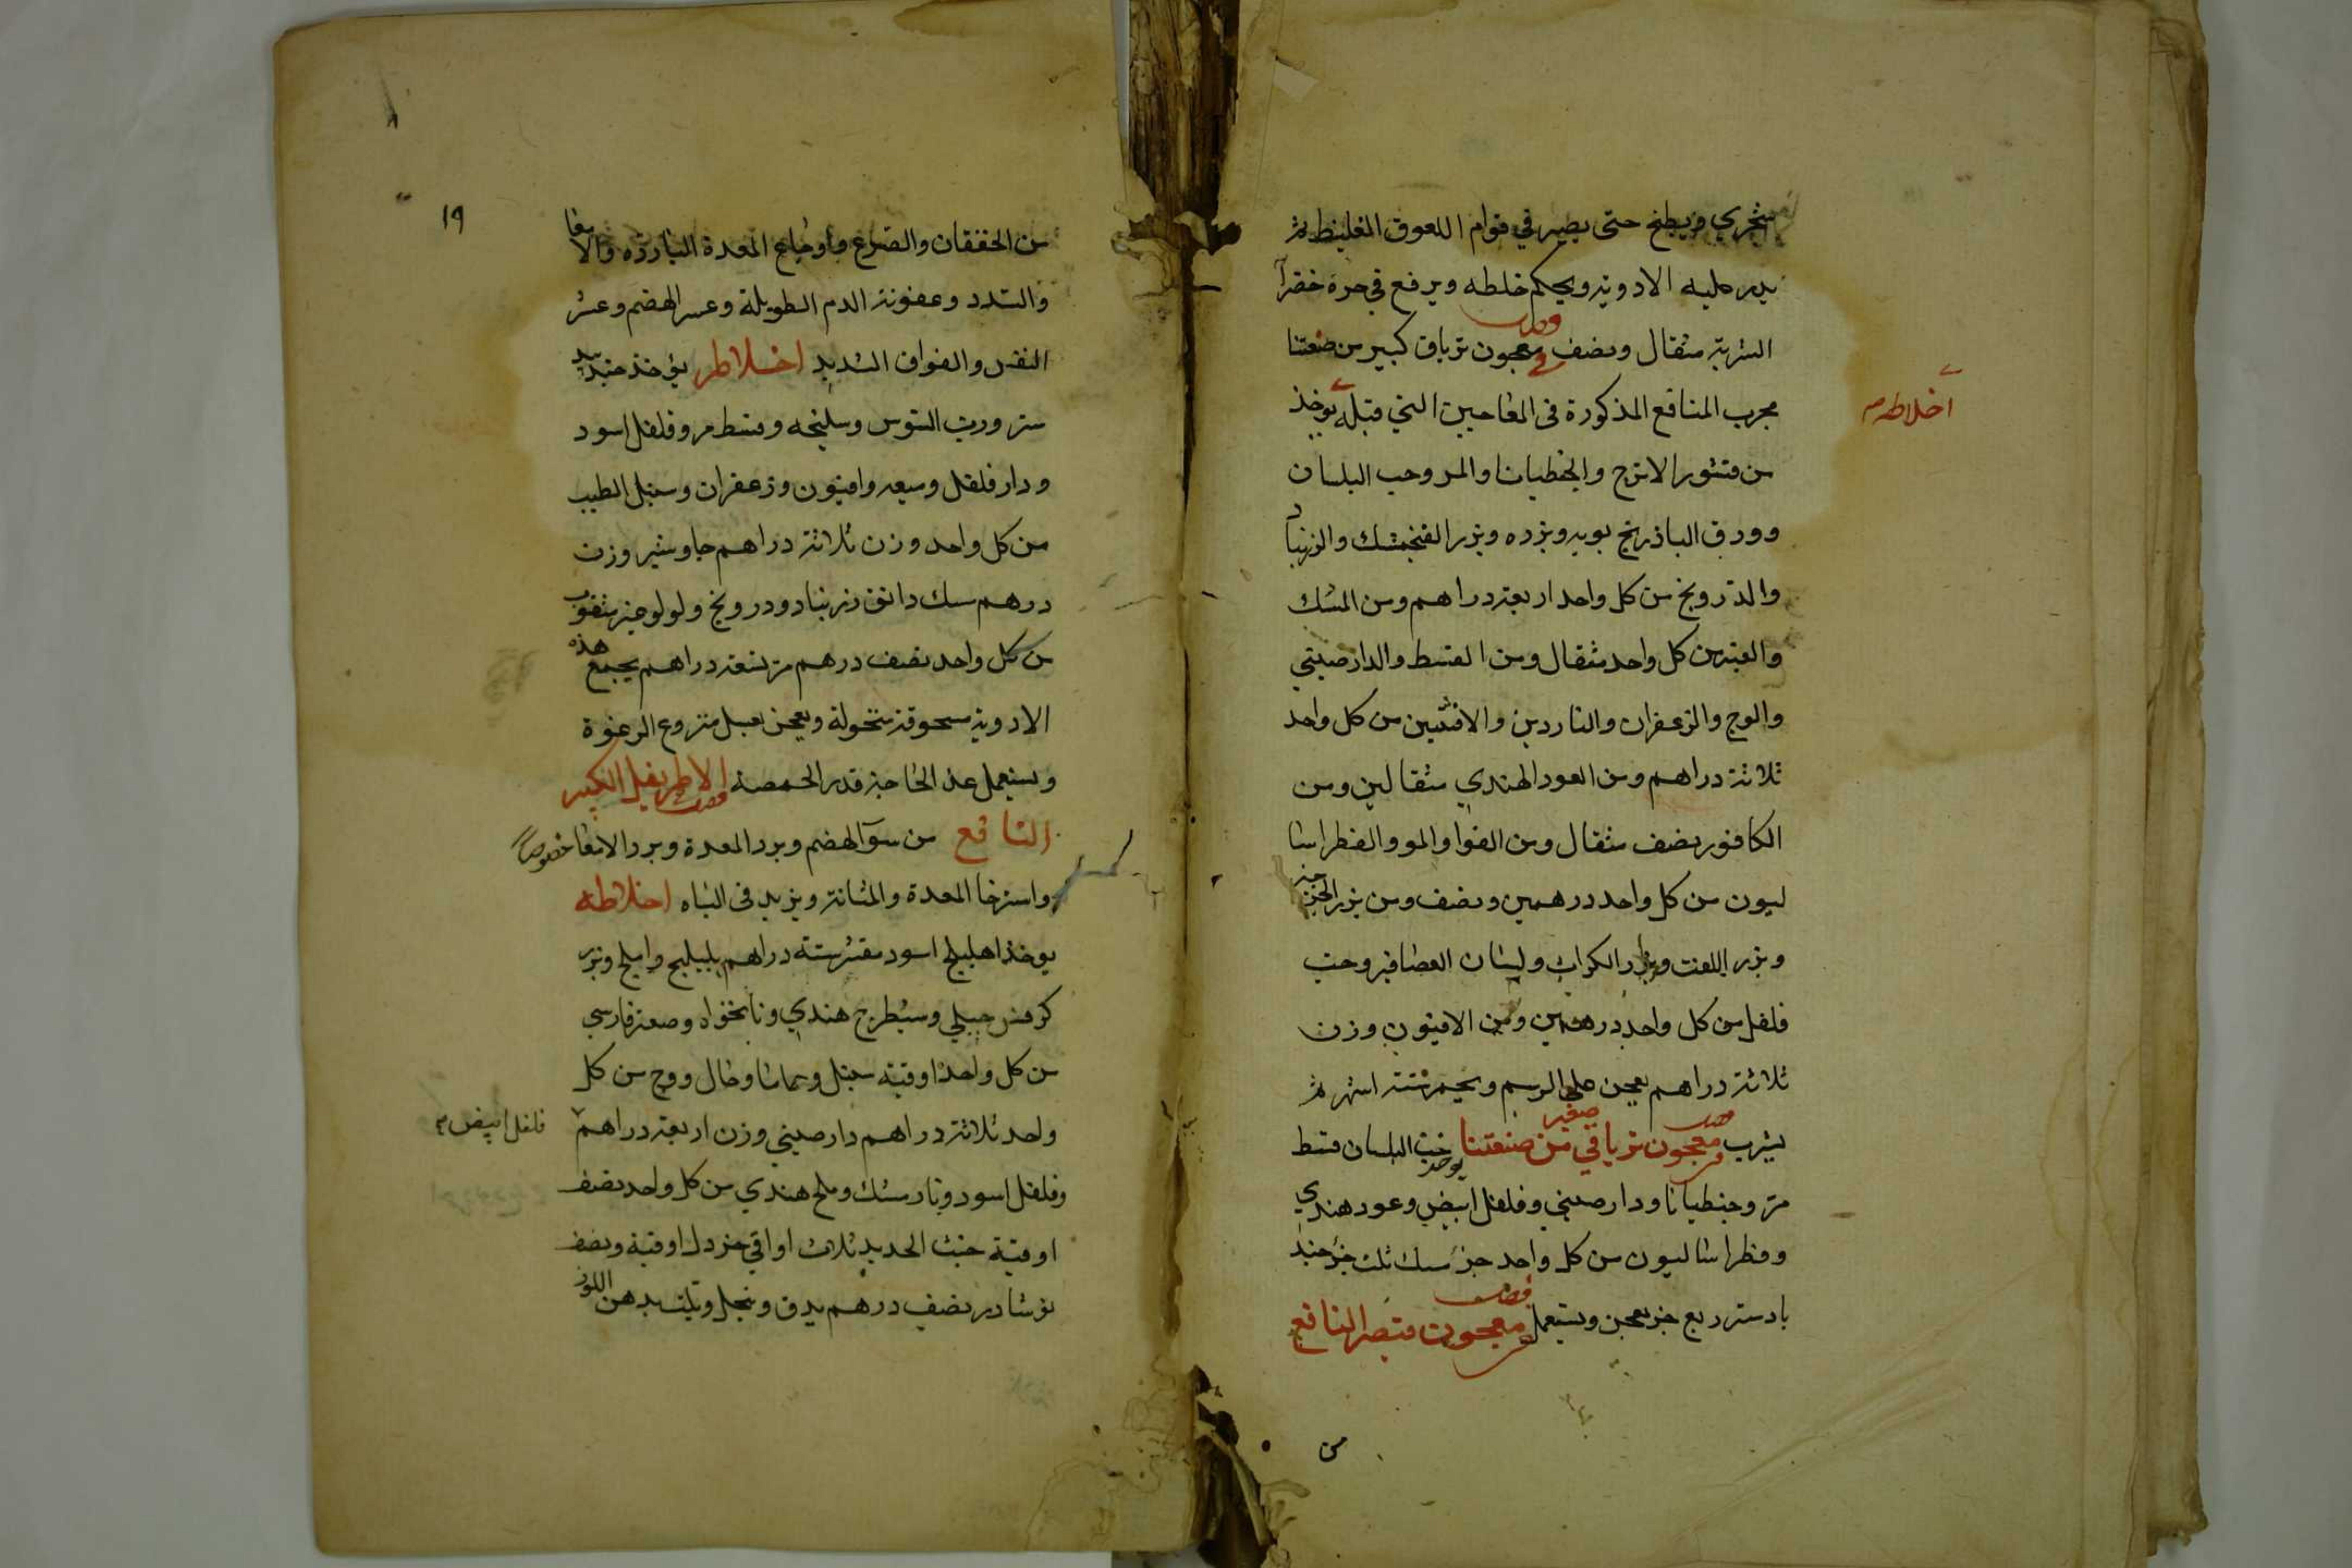 شجري ويطبخ حتى يصير في قوام اللعوق الغليظ ثم
يذر عليه الادوية ويحكم خلطه ويرفع في جرة خضرآ
الشربة مثقال ونصف معجون ترياق كبير من صنعتنا
مجرب المنافع المذكورة في المعاجين التي قبله يوخذ
اخلاطه
من قشور الاترج والجنطيانا والمر وحب البلسان
وورق الباذرنج بويه وبزره وبزر الفنجمشك والزرنباد
والدرونج من كل واحد اربعة دراهم ومن المسك
والعنبر من كل واحد مثقال ومن القسط والدارصيني
والوج والزعفران والناردين والافسنتين من كل واحد
ثلاثة دراهم ومن العود الهندي مثقالين ومن
الكافور نصف مثقال ومن الفوا والمو والفطراسا
ليون من كل واحد درهمين ونصف ومن بزر الجزر
وبزر اللفت وبزر الكراث ولسان العصافير وحب
فلفل من كل واحد درهمين ومن الافيون وزن
ثلاثة دراهم يعجن على الرسم ويخمر ستة اشهر ثم
يشرب معجون ترياقي صغير من صنعتنا يوخذ حب البلسان قسط
مر وجنطيانا ودارصيني وفلفل ابيض وعود هندي
وفطراساليون من كل واحد جزء مسك ثلث جزء جند
بادستر ربع جزء يعجن ويستعمل معجون قيصر النافع
من
١٩
من الخفقان والصرع واوجاع المعدة الباردة والامعا
والسدد وعفونة الدم الطويلة وعسر الهضم وعسر
النفس والفواق الشديد اخلاطه يوخذ جندبيد
ستر ورب السوس وسليخه وقسط مر وفلفل اسود
ودار فلفل وميعه وافيون وزعفران وسنبل الطيب
من كل واحد وزن ثلاثة دراهم جاوشير وزن
درهم مسك دانق زرنباد ودرونج ولولو غير مثقوب
من كل واحد نصف درهم مر تسعة دراهم يجمع هذه
الادوية مسحوقة منخولة ويعجن بعسل منزوع الرغوة
ويستعمل عند الحاجة قدر الحمصة الاطريفل الكبير
النافع من سوآ الهضم وبرد المعدة وبرد الامعا خصوصاً
واسترخا المعدة والمثانة ويزيد في الباه اخلاطه
يوخذ اهليلج اسود مقشر ستة دراهم بليليج واملج وبزر
كرفس جبلي وسيطرج هندي ونانخواه وصعتر فارسي
من كل واحد اوقية سنبل وحماما وهال ووج من كل
واحد ثلاثة دراهم دارصيني وزن اربعة دراهم
فلفل ابيض
وفلفل اسود ونارمشك وملح هندي من كل واحد نصف
اوقية خبث الحديد ثلاث اواقي خردل اوقية ونصف
نوشادر نصف درهم يدق وينخل ويلت بدهن اللوز